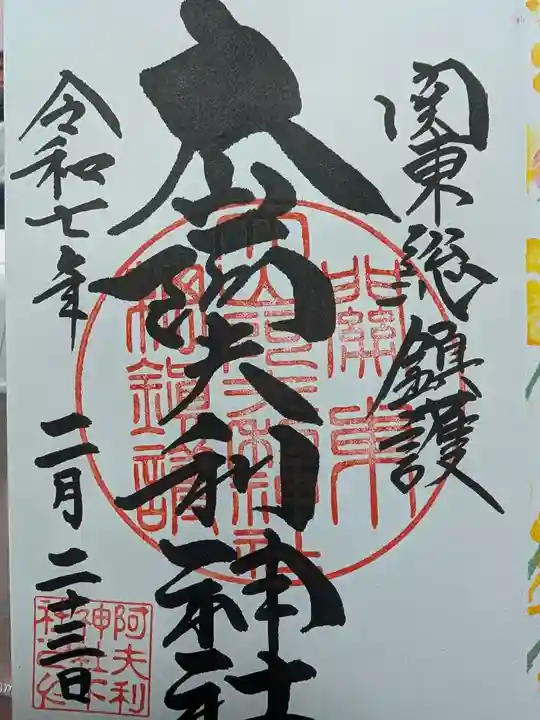 関東総鎮護
大山阿夫利神社
令和七年
二月二十三日
關東
大山阿夫利神社
總鎮護
阿夫利
神社下
社